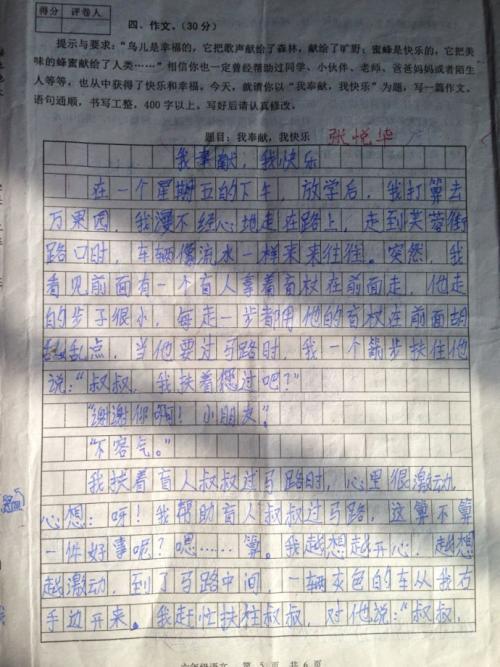 得分 评卷人
四、作文。(30分)
提示与要求:“鸟儿是幸福的,它把歌声献给了森林,献给了旷野;蜜蜂是快乐的,它把美
味的蜂蜜献给了人类……”相信你也一定曾经帮助过同学、小伙伴、老师、爸爸妈妈或者陌生
人等等,也从中获得了快乐和幸福。今天,就请你以“我奉献,我快乐”为题,写一篇作文。
语句通顺,书写工整,400字以上。写好后请认真修改。
题目:我奉献,我快乐 张悦华
我奉献,我快乐
在一个星期五的下午,放学后,我打算去
万果园,我漫不经心地走在路上,走到芙蓉街
路口时,车辆像流水一样来来往往。突然,我
看见前面有一个盲人拿着盲杖在前面走,他走
的步子很小,每走一步都用他的盲杖在前面胡
乱点,当他要过马路时,我一个箭步扶住他
说:“叔叔,我扶着您过吧?”
“谢谢你啊!小朋友”。
“不客气。”
我扶着盲人叔叔过马路时,心里很激动
心想:呀!我帮助盲人叔叔过马路,这算不算
一件好事呢?嗯……算。我越想越开心,越想
越激动,到了马路中间,一辆灰色的车从我右
手边开来。我赶忙扶住叔叔,对他说:“叔叔,
六年级语文 第5页 共6页